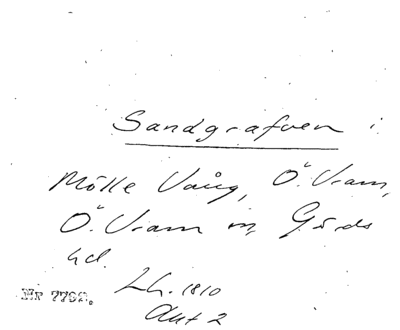 Sandgrafven i
Mölle Vång, Ö. Vram,
Ö. Vram sn, Gärds
hd.
Lh. 1810
Akt 2